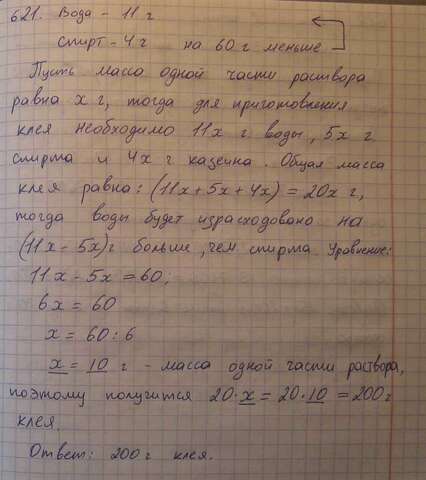 621. Вода - 11 г
спирт - 4 г на 60 г меньше
Пусть масса одной части раствора
равна x г, тогда для приготовления
клея необходимо 11x г воды, 5x г
спирта и 4x г казеина. Общая масса
клея равна: (11x + 5x + 4x) = 20x г,
тогда воды будет израсходовано на
(11x - 5x) г больше, чем спирта. Уравнение:
11x - 5x = 60;
6x = 60
x = 60 : 6
x = 10 г - масса одной части раствора,
поэтому получится 20·x = 20·10 = 200 г
клея.
Ответ: 200 г клея.